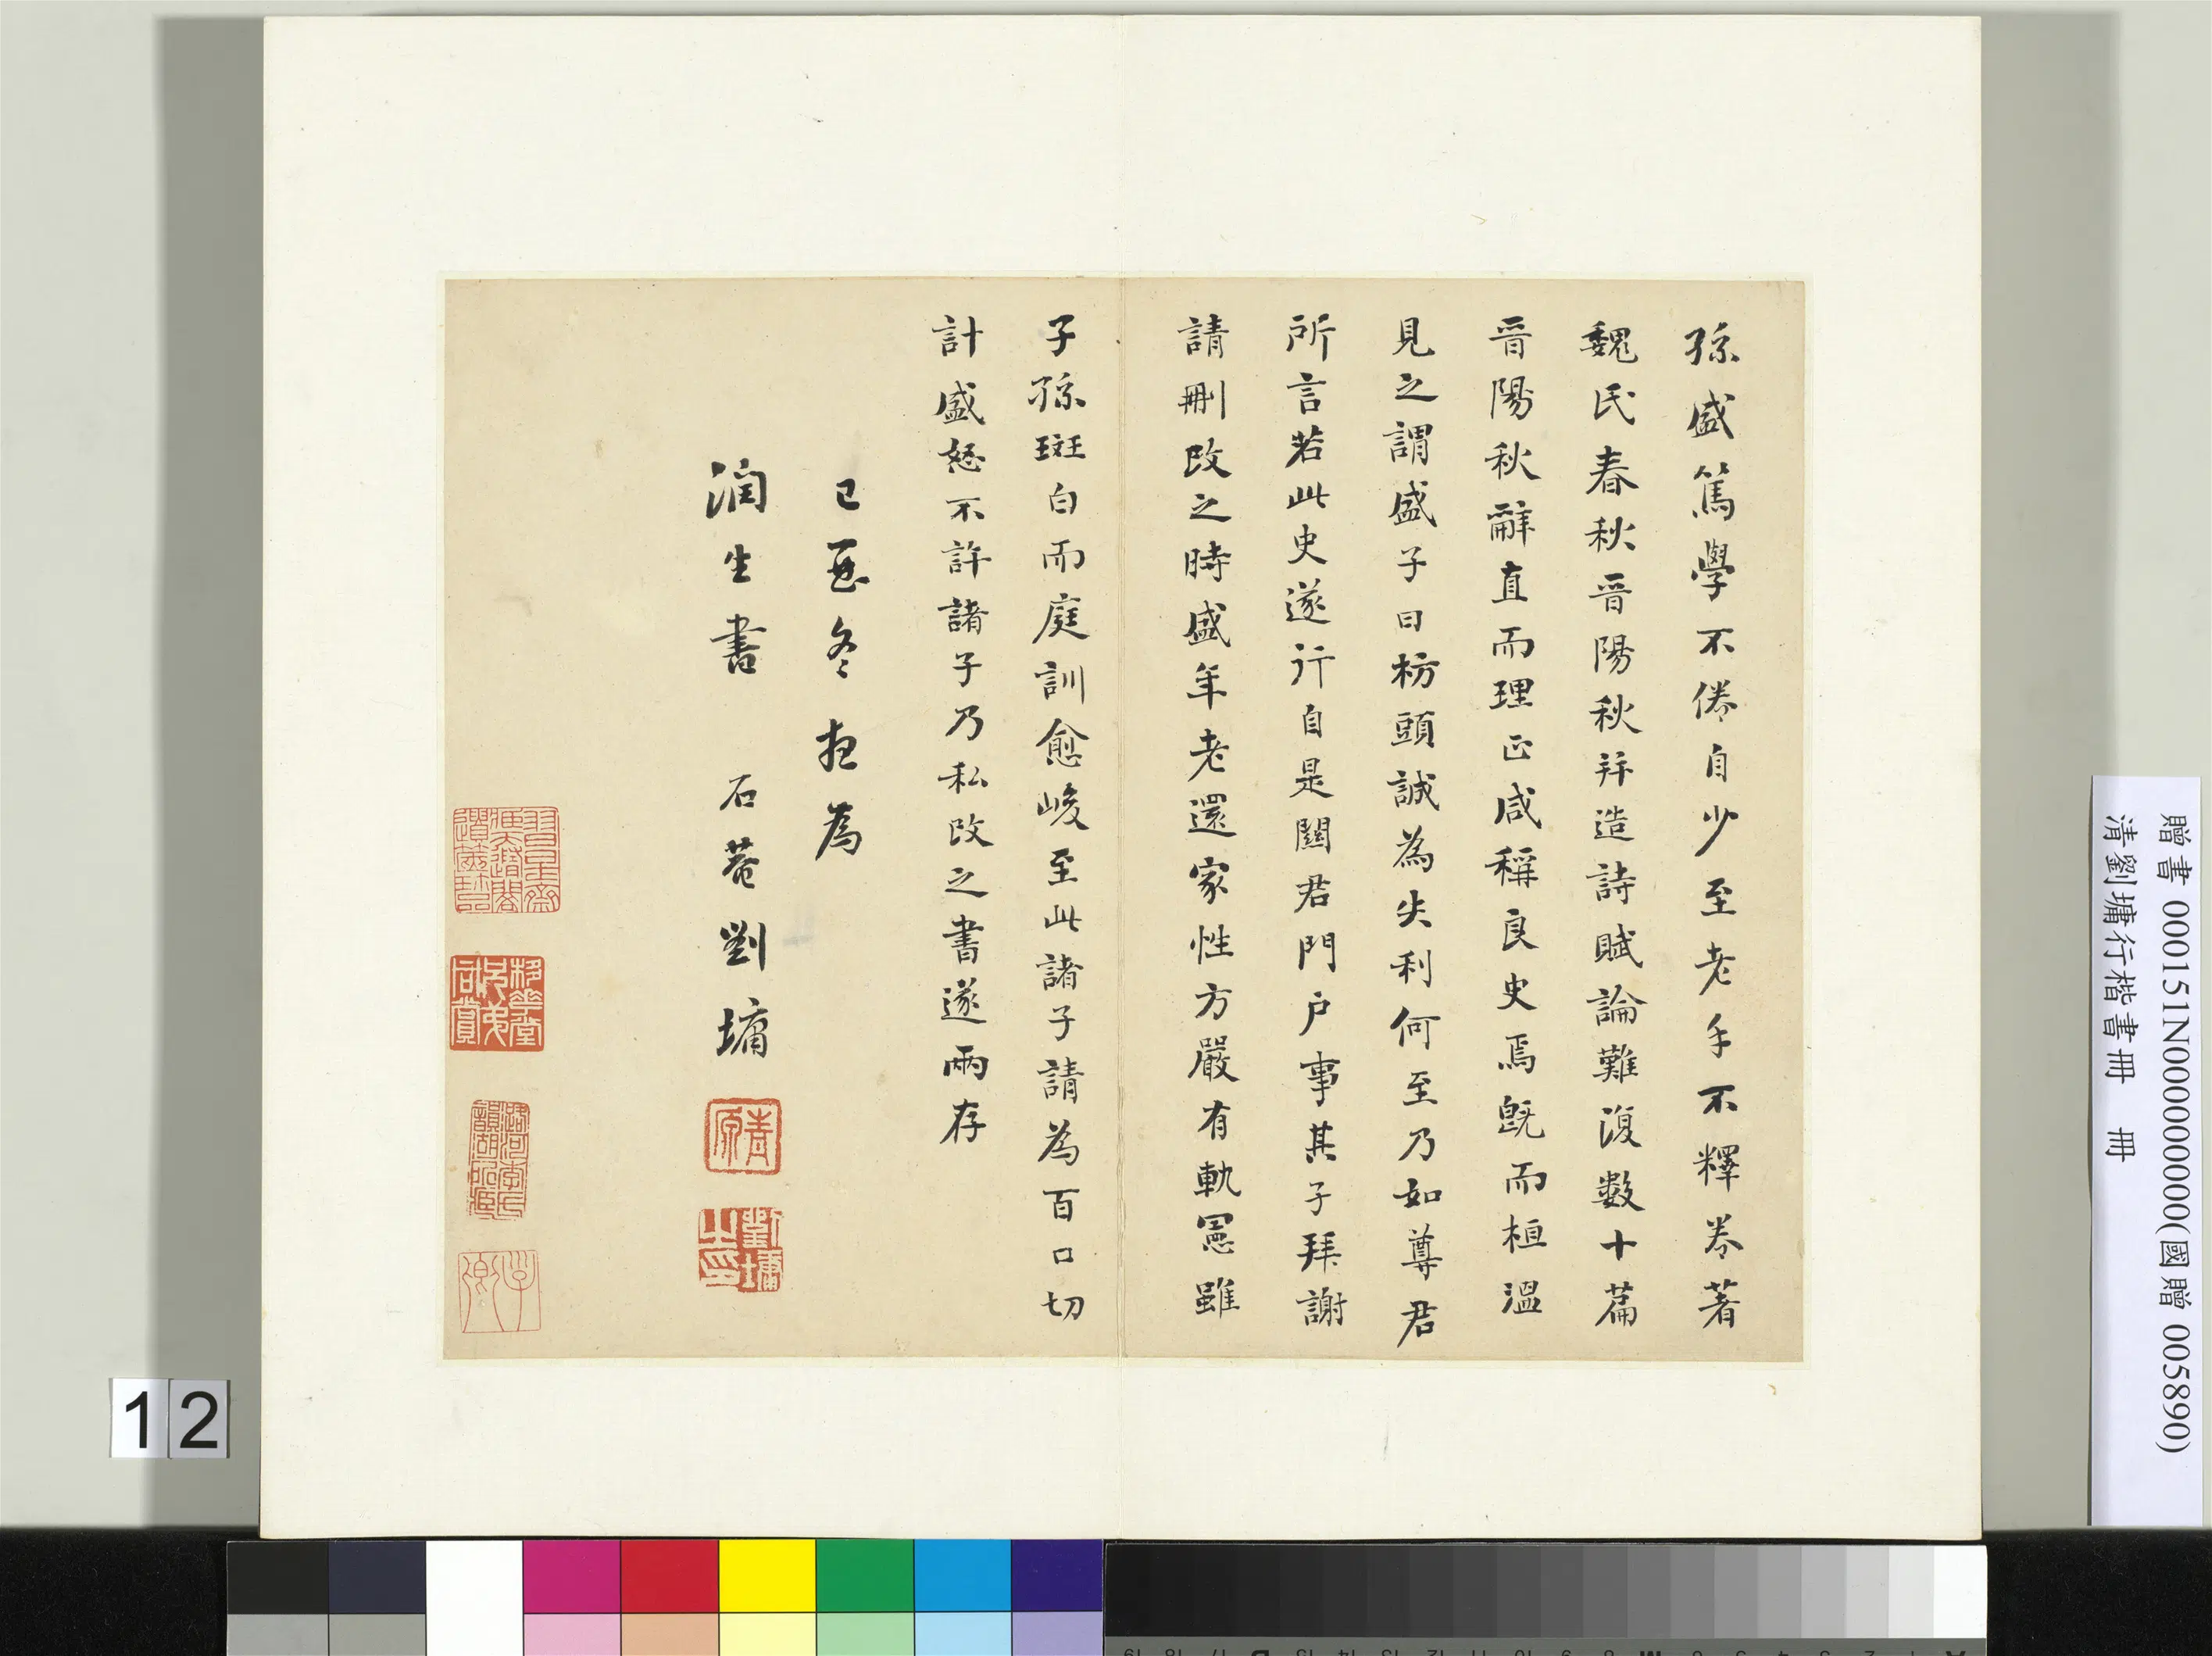 孫盛篤學不倦自少至老手不釋卷著
魏氏春秋晉陽秋并造詩賦論難復数十篇
晉陽秋辭直而理正咸稱良史焉既而桓溫
見之謂盛子曰枋頭誠為失利何至乃如尊君
所言若此史遂行自是關君門户事其子拜謝
請刪改之時盛年老還家性方嚴有軌憲雖
子孫斑白而庭訓愈峻至此諸子請為百口切
計盛怒不許諸子乃私改之書遂兩存
己酉冬夜為
潤生書 石菴劉墉
青原
劉墉之印
贈書 000151N000000000(國贈 005890)
清劉墉行楷書冊 冊
12